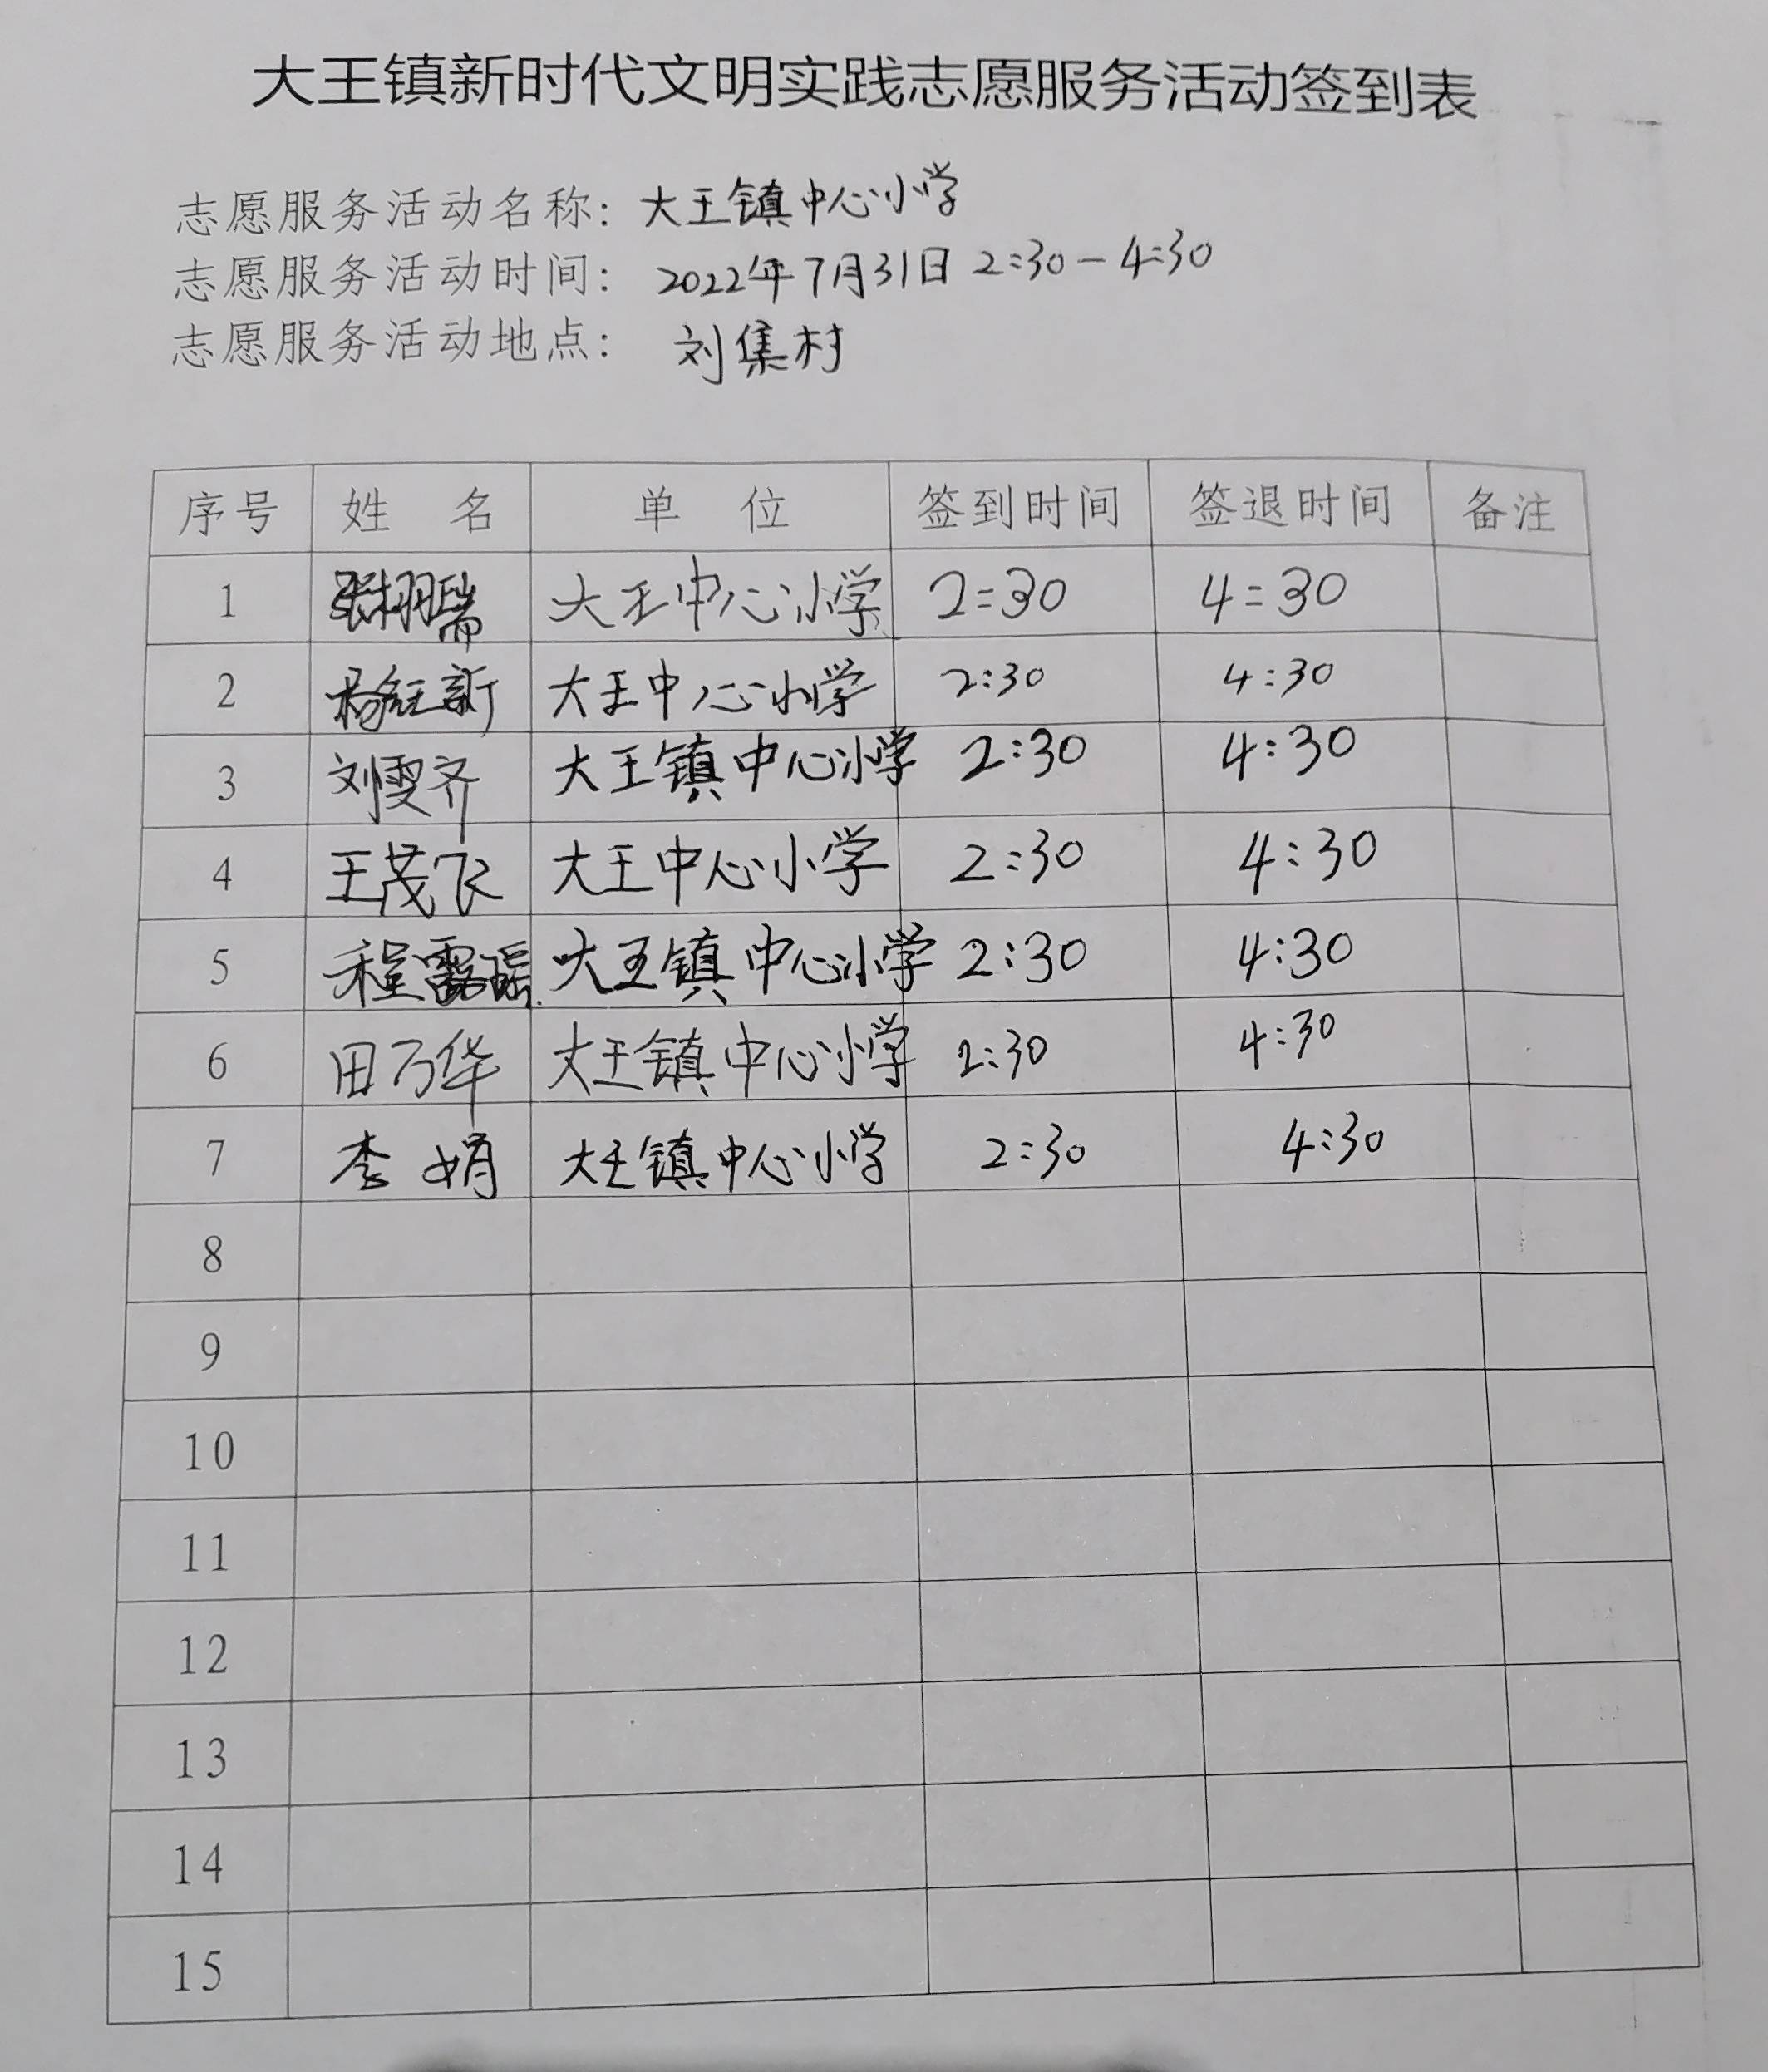 大王镇新时代文明实践志愿服务活动签到表
志愿服务活动名称：大王镇中心小学
志愿服务活动时间：2022年7月31日 2:30-4:30
志愿服务活动地点：刘集村
序号 姓 名 单 位 签到时间 签退时间 备注
1 大王中心小学 2:30 4:30
2 杨钰新 大王中心小学 2:30 4:30
3 刘雯齐 大王镇中心小学 2:30 4:30
4 王茂飞 大王中心小学 2:30 4:30
5 程露瑶 大王镇中心小学 2:30 4:30
6 田万华 大王镇中心小学 2:30 4:30
7 李娟 大王镇中心小学 2:30 4:30
8
9
10
11
12
13
14
15